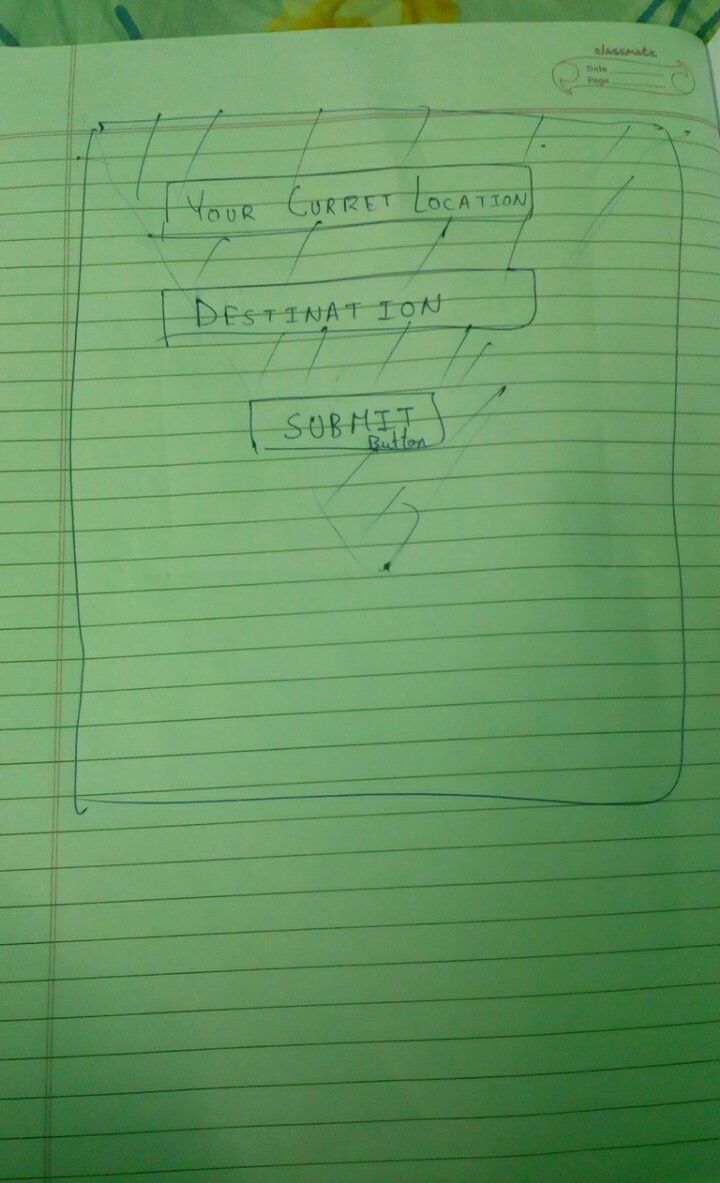 classmate
Date
Page
YOUR CURRET LOCATION
DESTINATION
SUBMIT
Button